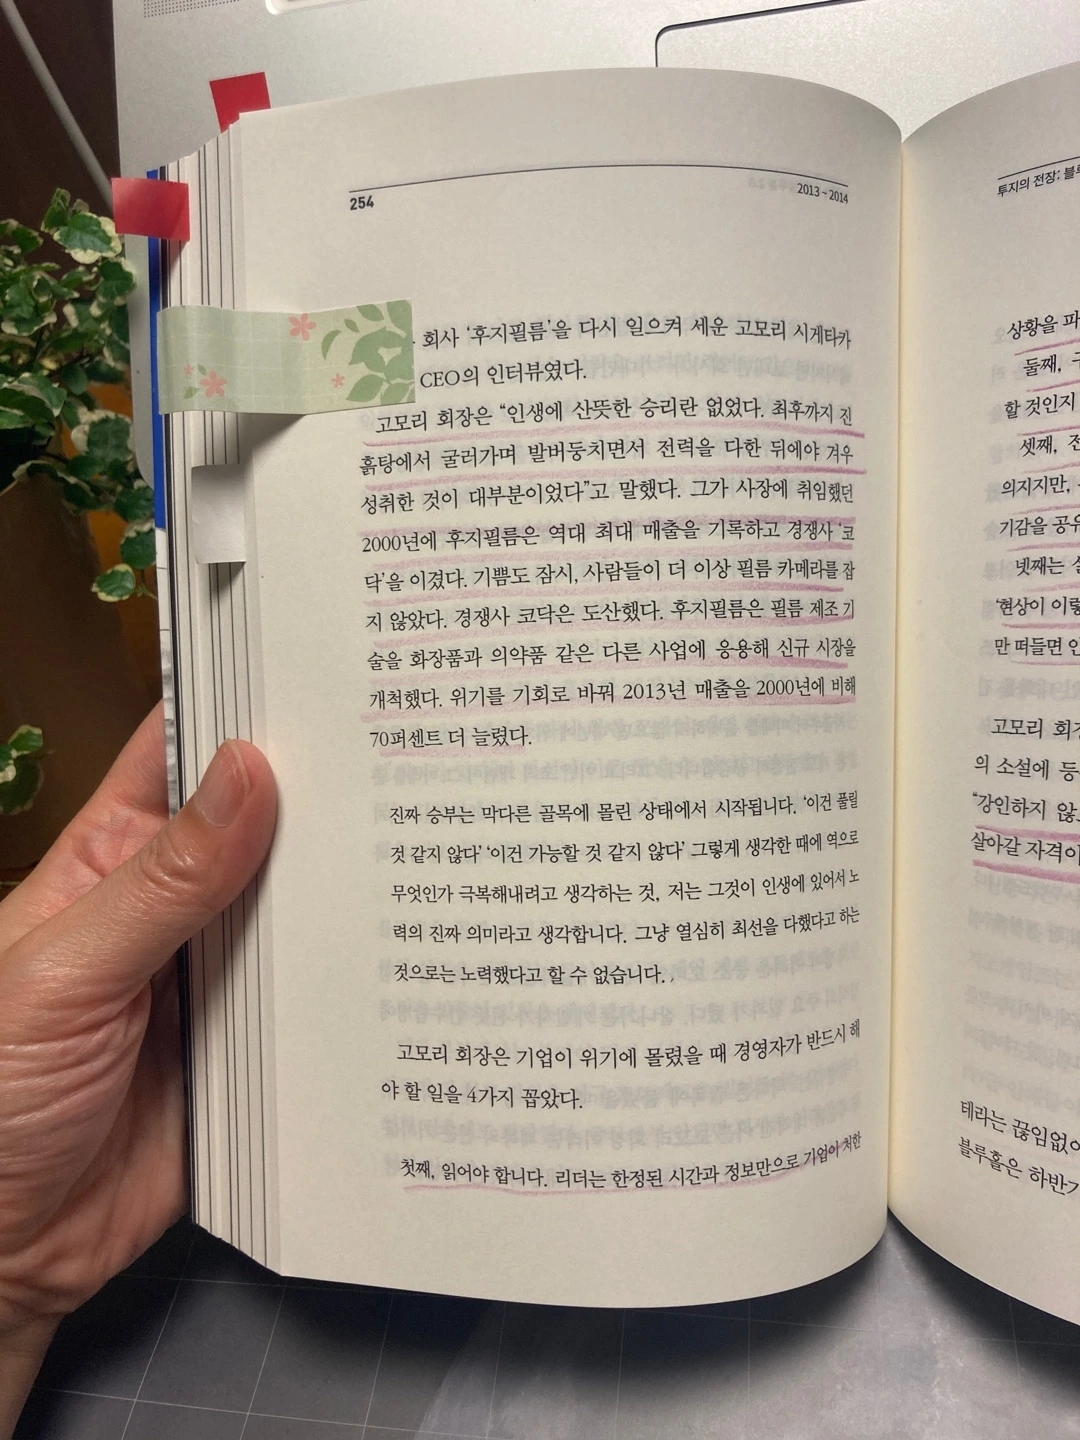 254
2013~2014
회사 ‘후지필름’을 다시 일으켜 세운 고모리 시게타카
CEO의 인터뷰였다.
고모리 회장은 “인생에 산뜻한 승리란 없었다. 최후까지 진
흙탕에서 굴러가며 발버둥치면서 전력을 다한 뒤에야 겨우
성취한 것이 대부분이었다”고 말했다. 그가 사장에 취임했던
2000년에 후지필름은 역대 최대 매출을 기록하고 경쟁사 ‘코
닥’을 이겼다. 기쁨도 잠시, 사람들이 더 이상 필름 카메라를 잡
지 않았다. 경쟁사 코닥은 도산했다. 후지필름은 필름 제조 기
술을 화장품과 의약품 같은 다른 사업에 응용해 신규 시장을
개척했다. 위기를 기회로 바꿔 2013년 매출을 2000년에 비해
70퍼센트 더 늘렸다.
진짜 승부는 막다른 골목에 몰린 상태에서 시작됩니다. ‘이건 풀릴
것 같지 않다’ ‘이건 가능할 것 같지 않다’ 그렇게 생각한 때에 역으로
무엇인가 극복해내려고 생각하는 것, 저는 그것이 인생에 있어서 노
력의 진짜 의미라고 생각합니다. 그냥 열심히 최선을 다했다고 하는
것으로는 노력했다고 할 수 없습니다.
고모리 회장은 기업이 위기에 몰렸을 때 경영자가 반드시 해
야 할 일을 4가지 꼽았다.
첫째, 읽어야 합니다. 리더는 한정된 시간과 정보만으로 기업이 처한
투지의 전장: 블루
상황을 파
둘째,
할 것인지
셋째,
의지지만,
기감을 공유
넷째는
‘현상이 이렇
만 떠들면
고모리 회장
의 소설에 등
“강인하지 않
살아갈 자격이
테라는 끊임없이
블루홀은 하반기